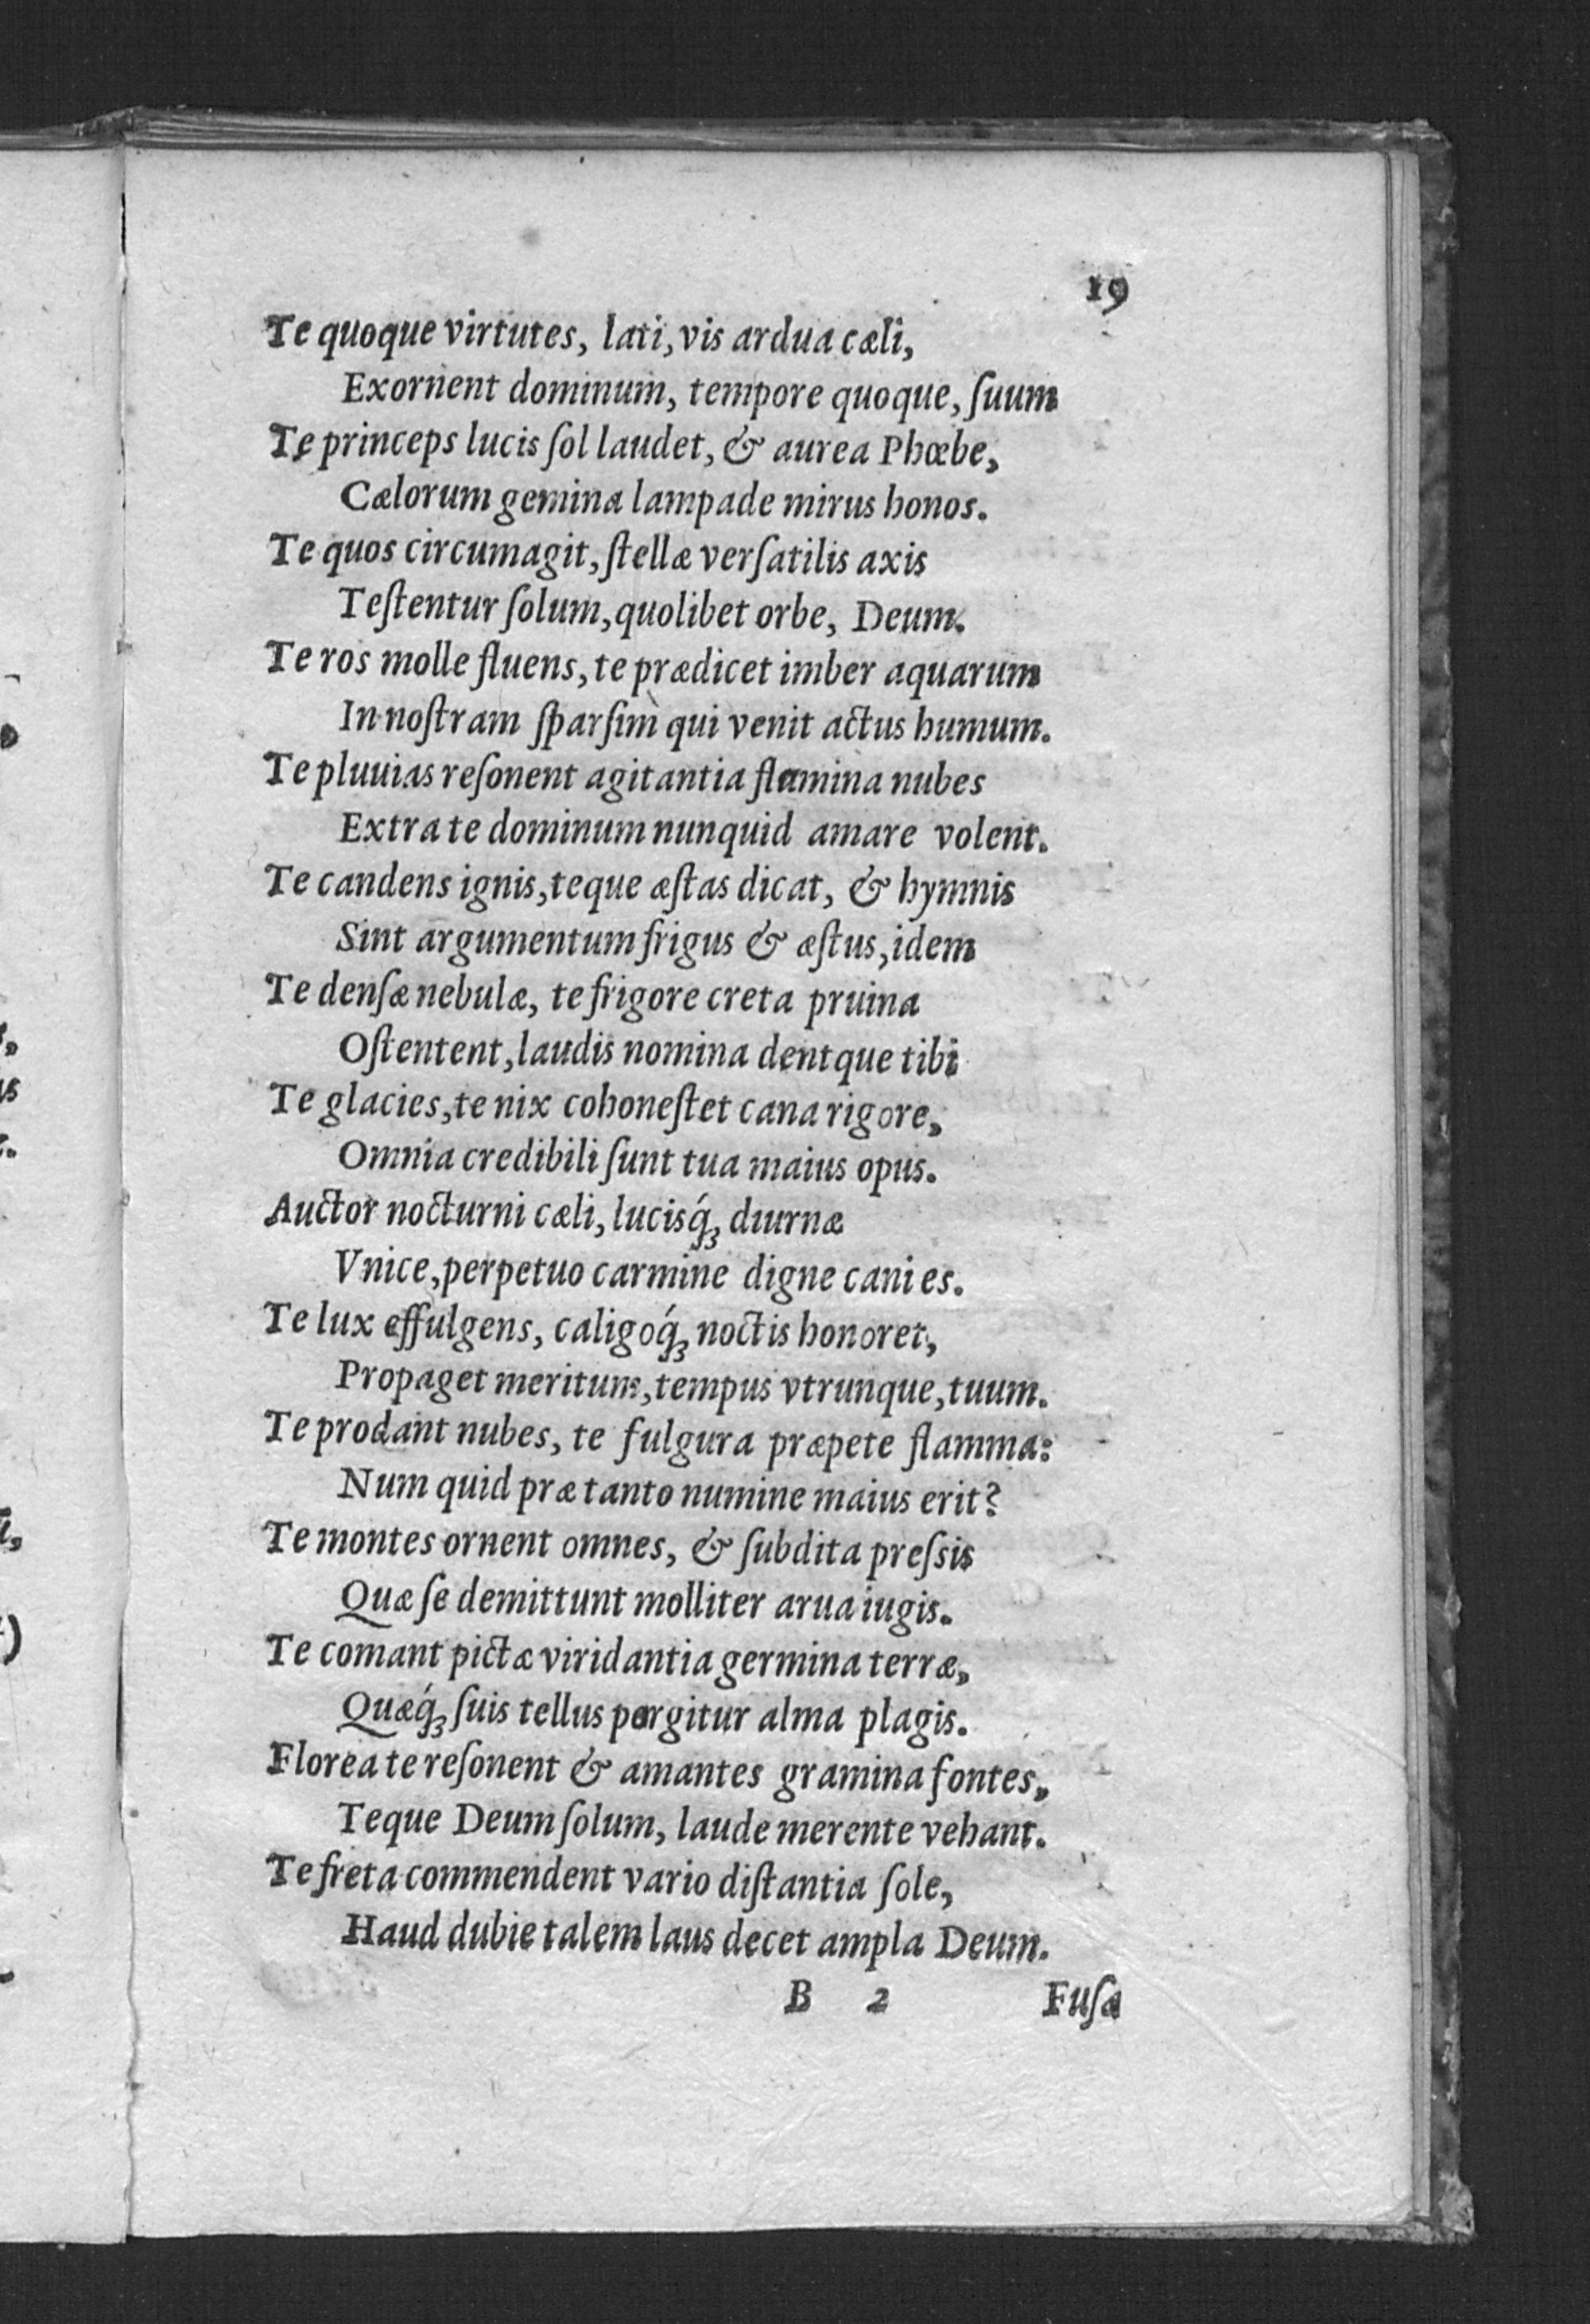 19
Te quoque virtutes, lati, vis ardua cæli,
Exornent dominum, tempore quoque, ſuum
Te princeps lucis ſol laudet, & aurea Phœbe,
Cælorum gemina lampade mirus honos.
Te quos circumagit, ſtellæ verſatilis axis
Teſtentur ſolum, quolibet orbe, Deum.
Te ros molle fluens, te prædicet imber aquarum
In noſtram ſparſim qui venit actus humum.
Te pluuias reſonent agitantia flamina nubes
Extra te dominum nunquid amare volent.
Te candens ignis, teque æſtas dicat, & hymnis
Sint argumentum frigus & æſtus, idem
Te denſæ nebulæ, te frigore creta pruina
Oſtentent, laudis nomina dentque tibi
Te glacies, te nix cohoneſtet cana rigore,
Omnia credibili ſunt tua maius opus.
Auctor nocturni cæli, lucisq́ꝫ diurnæ
Vnice, perpetuo carmine digne cani es.
Te lux effulgens, caligoq́ꝫ noctis honoret,
Propaget meritum, tempus vtrunque, tuum.
Te prodant nubes, te fulgura præpete flamma:
Num quid præ tanto numine maius erit?
Te montes ornent omnes, & ſubdita preſsis
Quæ ſe demittunt molliter arua iugis.
Te comant pictæ viridantia germina terræ,
Quæq́ꝫ ſuis tellus pergitur alma plagis.
Florea te reſonent & amantes gramina fontes,
Teque Deum ſolum, laude merente vehant.
Te freta commendent vario diſtantia ſole,
Haud dubie talem laus decet ampla Deum.
B 2 Fuſa